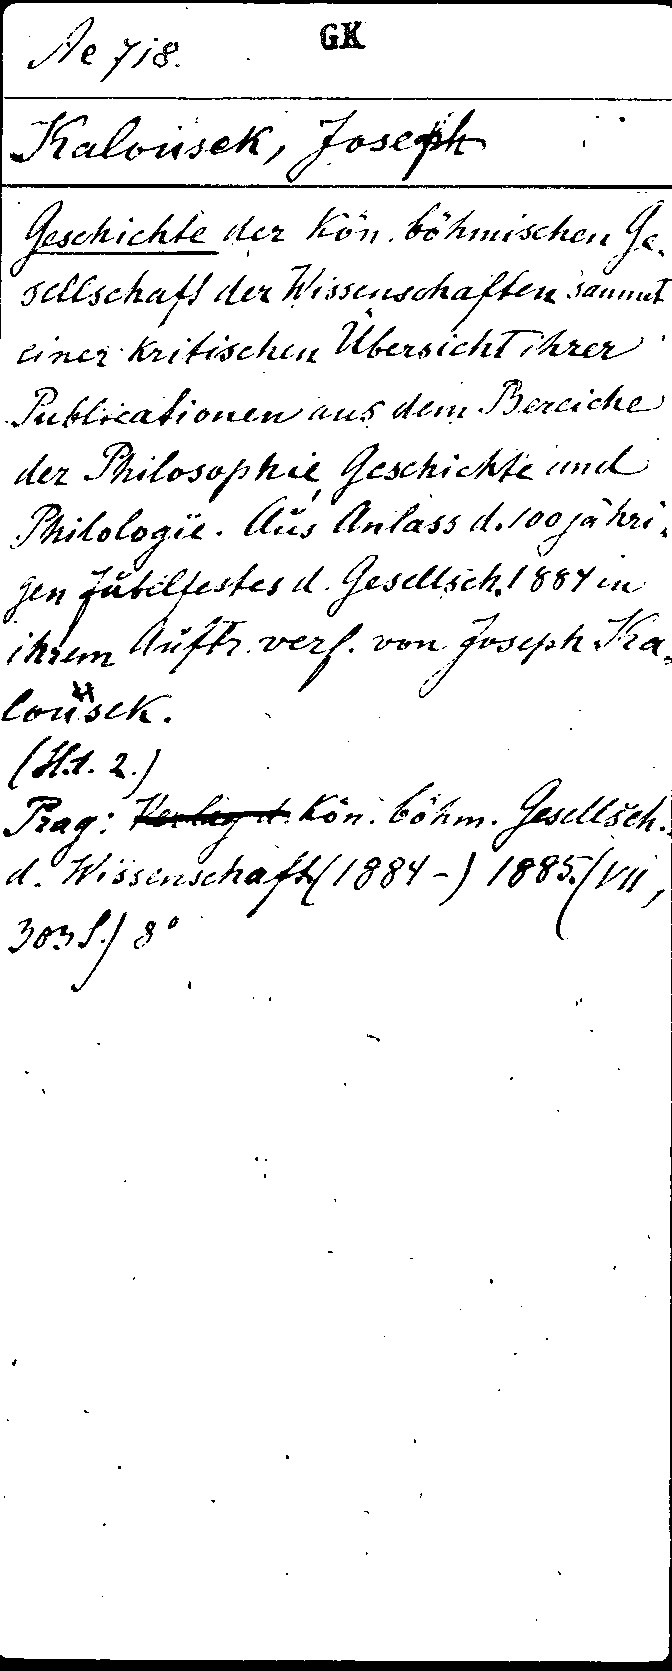 GK
Ae 718.
Kalousek, Joseph
Geschichte der Kön. böhmischen Ge-
sellschaft der Wissenschaften sammt
einer kritischen Übersicht ihrer
Publicationen aus dem Bereiche
der Philosophie, Geschichte und
Philologie. Aus Anlass d. 100jähri-
gen Jubelfestes d. Gesellsch. 1884 in
ihrem Auftr. verf. von Joseph Ka-
lousek.
(H. 1. 2.)
Prag: Verlag d. Kön. böhm. Gesellsch.
d. Wissenschaft (1884-) 1885. (VII,
303 S.) 8°